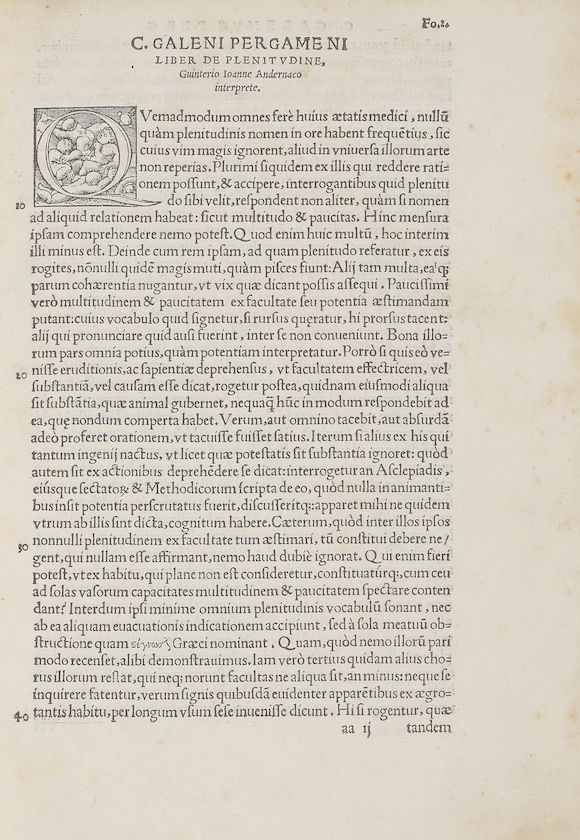 Fo.2.
C. GALENI PERGAMENI
LIBER DE PLENITVDINE,
Guinterio Ioanne Andernaco
interprete.
QVemadmodum omnes ferè huius ætatis medici, nullū
quàm plenitudinis nomen in ore habent frequētius, sic
cuius vim magis ignorent, aliud in vniuersa illorum arte
non reperias. Plurimi siquidem ex illis qui reddere rati=
onem possunt, & accipere, interrogantibus quid plenitu
10 do sibi velit, respondent non aliter, quàm si nomen
ad aliquid relationem habeat: sicut multitudo & paucitas. Hinc mensura
ipsam comprehendere nemo potest. Quod enim huic multū, hoc interim
illi minus est. Deinde cum rem ipsam, ad quam plenitudo referatur, ex eis
rogites, nōnulli quidē magis muti, quàm pisces fiunt: Alij tam multa, eaq́;
parum cohærentia nugantur, vt vix quæ dicant possis assequi. Paucissimi
verò multitudinem & paucitatem ex facultate seu potentia æstimandam
putant: cuius vocabulo quid signetur, si rursus quęratur, hi prorsus tacent:
alij qui pronunciare quid ausi fuerint, inter se non conueniunt. Bona illo=
rum pars omnia potius, quàm potentiam interpretatur. Porrò si quis eò ve=
20 nisse eruditionis, ac sapientiæ deprehensus, vt facultatem effectricem, vel
substantiā, vel causam esse dicat, rogetur postea, quidnam eiusmodi aliqua
sit substātia, quæ animal gubernet, nequaq̄ hūc in modum respondebit ad
ea, quę nondum comperta habet. Verum, aut omnino tacebit, aut absurdā
adeò proferet orationem, vt tacuisse fuisset satius. Iterum si alius ex his qui
tantum ingenij nactus, vt licet quæ potestatis sit substantia ignoret: quòd
autem sit ex actionibus deprehēdere se dicat: interrogetur an Asclepiadis,
eiúsque sectatoꝝ & Methodicorum scripta de eo, quòd nulla in animanti=
bus insit potentia perscrutatus fuerit, discusseritq;: apparet mihi ne quidem
vtrum ab illis sint dicta, cognitum habere. Cæterum, quòd inter illos ipsos
30 nonnulli plenitudinem ex facultate tum æstimari, tū constitui debere ne/
gent, qui nullam esse affirmant, nemo haud dubiè ignorat. Qui enim fieri
potest, vt ex habitu, qui plane non est consideretur, constituatúrq;, cum ceu
ad solas vasorum capacitates multitudinem & paucitatem spectare conten
dant? Interdum ipsi minime omnium plenitudinis vocabulū sonant, nec
ab ea aliquam euacuationis indicationem accipiunt, sed à sola meatuū ob=
structione quam Græci nominant. Quam, quòd nemo illorū pari
modo recenset, alibi demonstrauimus. Iam verò tertius quidam alius cho=
rus illorum restat, qui neq; norunt facultas ne aliqua sit, an minus: neque se
inquirere fatentur, verum signis quibusdā euidenter apparētibus ex ægro=
40 tantis habitu, per longum vsum sese inuenisse dicunt. Hi si rogentur, quæ
aa ij tandem